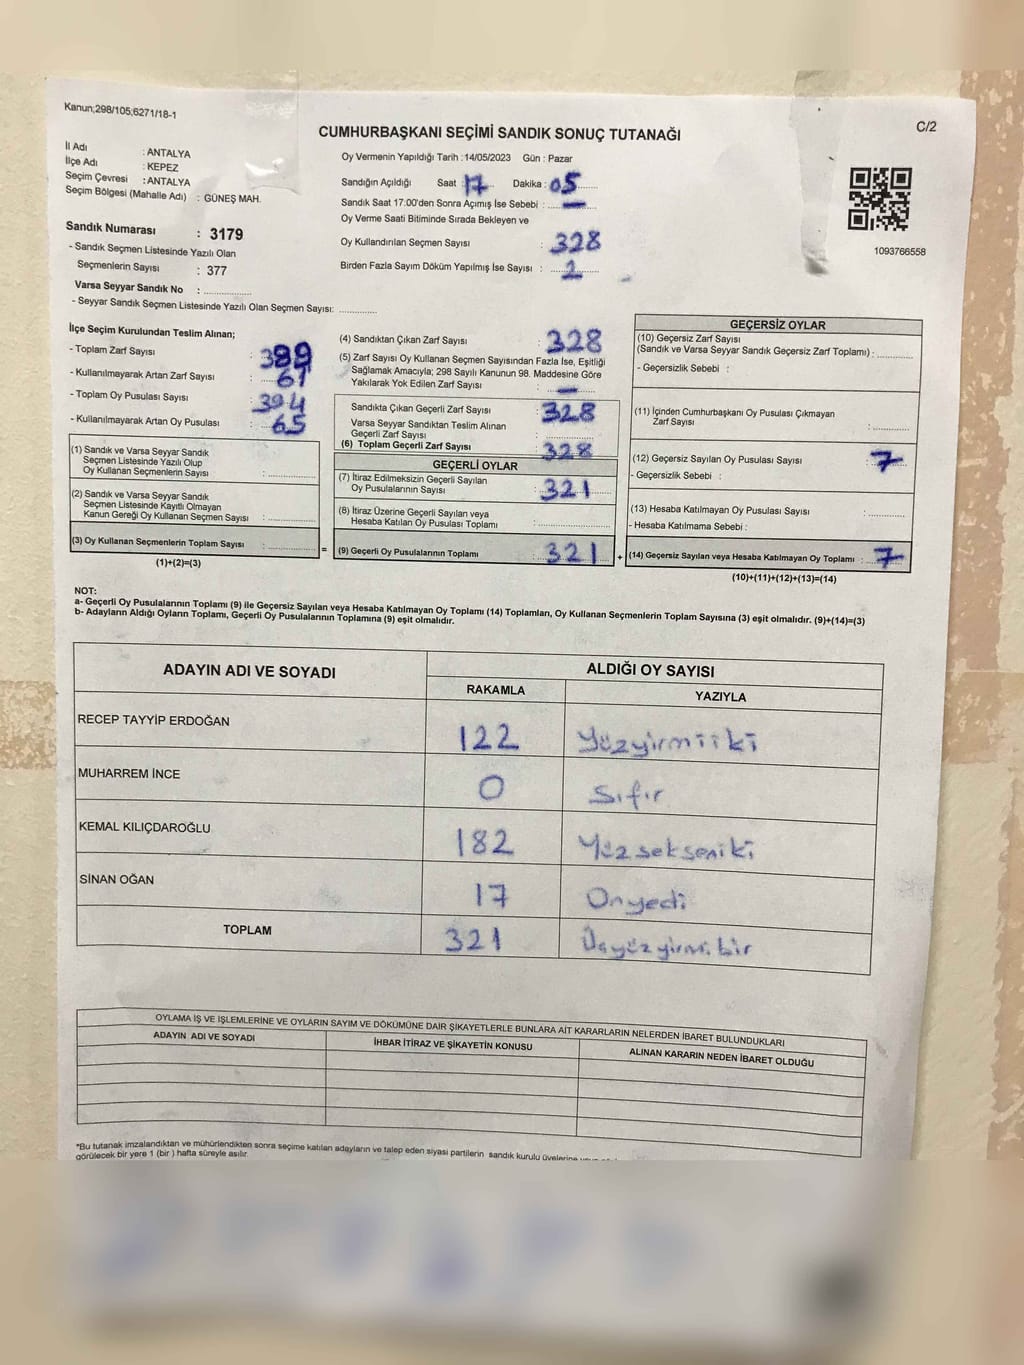 Kanun;298/105;6271/18-1
C/2
CUMHURBAŞKANI SEÇİMİ SANDIK SONUÇ TUTANAĞI
İl Adı : ANTALYA
İlçe Adı : KEPEZ
Seçim Çevresi : ANTALYA
Seçim Bölgesi (Mahalle Adı) : GÜNEŞ MAH.
Sandık Numarası : 3179
- Sandık Seçmen Listesinde Yazılı Olan
Seçmenlerin Sayısı : 377
Varsa Seyyar Sandık No : ..................
- Seyyar Sandık Seçmen Listesinde Yazılı Olan Seçmen Sayısı: ..............
Oy Vermenin Yapıldığı Tarih : 14/05/2023 Gün : Pazar
Sandığın Açıldığı Saat : 17 Dakika : 05
Sandık Saat 17:00'den Sonra Açımış İse Sebebi : —
Oy Verme Saati Bitiminde Sırada Bekleyen ve
Oy Kullandırılan Seçmen Sayısı : 328
Birden Fazla Sayım Döküm Yapılmış İse Sayısı :
1093766558
İlçe Seçim Kurulundan Teslim Alınan;
- Toplam Zarf Sayısı : 389
- Kullanılmayarak Artan Zarf Sayısı : 61
- Toplam Oy Pusulası Sayısı : 394
- Kullanılmayarak Artan Oy Pusulası : 65
(1) Sandık ve Varsa Seyyar Sandık
Seçmen Listesinde Yazılı Olup
Oy Kullanan Seçmenlerin Sayısı : ..............
(2) Sandık ve Varsa Seyyar Sandık
Seçmen Listesinde Kayıtlı Olmayan
Kanun Gereği Oy Kullanan Seçmen Sayısı : ..............
(3) Oy Kullanan Seçmenlerin Toplam Sayısı : .............. =
(1)+(2)=(3)
(4) Sandıktan Çıkan Zarf Sayısı : 328
(5) Zarf Sayısı Oy Kullanan Seçmen Sayısından Fazla İse, Eşitliği
Sağlamak Amacıyla; 298 Sayılı Kanunun 98. Maddesine Göre
Yakılarak Yok Edilen Zarf Sayısı : —
Sandıkta Çıkan Geçerli Zarf Sayısı : 328
Varsa Seyyar Sandıktan Teslim Alınan
Geçerli Zarf Sayısı : ..............
(6) Toplam Geçerli Zarf Sayısı : 328
GEÇERLİ OYLAR
(7) İtiraz Edilmeksizin Geçerli Sayılan
Oy Pusulalarının Sayısı : 321
(8) İtiraz Üzerine Geçerli Sayılan veya
Hesaba Katılan Oy Pusulası Toplamı : ..............
(9) Geçerli Oy Pusulalarının Toplamı : 321 +
GEÇERSİZ OYLAR
(10) Geçersiz Zarf Sayısı
(Sandık ve Varsa Seyyar Sandık Geçersiz Zarf Toplamı) : ............
- Geçersizlik Sebebi :
(11) İçinden Cumhurbaşkanı Oy Pusulası Çıkmayan
Zarf Sayısı : ............
(12) Geçersiz Sayılan Oy Pusulası Sayısı : 7
- Geçersizlik Sebebi :
(13) Hesaba Katılmayan Oy Pusulası Sayısı : ............
- Hesaba Katılmama Sebebi :
(14) Geçersiz Sayılan veya Hesaba Katılmayan Oy Toplamı : 7
(10)+(11)+(12)+(13)=(14)
NOT:
a- Geçerli Oy Pusulalarının Toplamı (9) ile Geçersiz Sayılan veya Hesaba Katılmayan Oy Toplamı (14) Toplamları, Oy Kullanan Seçmenlerin Toplam Sayısına (3) eşit olmalıdır. (9)+(14)=(3)
b- Adayların Aldığı Oyların Toplamı, Geçerli Oy Pusulalarının Toplamına (9) eşit olmalıdır.
ADAYIN ADI VE SOYADI ALDIĞI OY SAYISI
RAKAMLA YAZIYLA
RECEP TAYYİP ERDOĞAN 122 Yüzyirmiiki
MUHARREM İNCE 0 Sıfır
KEMAL KILIÇDAROĞLU 182 Yüzsekseniki
SİNAN OĞAN 17 Onyedi
TOPLAM 321 Üçyüzyirmibir
OYLAMA İŞ VE İŞLEMLERİNE VE OYLARIN SAYIM VE DÖKÜMÜNE DAİR ŞİKAYETLERLE BUNLARA AİT KARARLARIN NELERDEN İBARET BULUNDUKLARI
ADAYIN ADI VE SOYADI İHBAR İTİRAZ VE ŞİKAYETİN KONUSU ALINAN KARARIN NEDEN İBARET OLDUĞU
*Bu tutanak imzalandıktan ve mühürlendikten sonra seçime katılan adayların ve talep eden siyasi partilerin sandık kurulu üyelerine
görülecek bir yere 1 (bir ) hafta süreyle asılır.